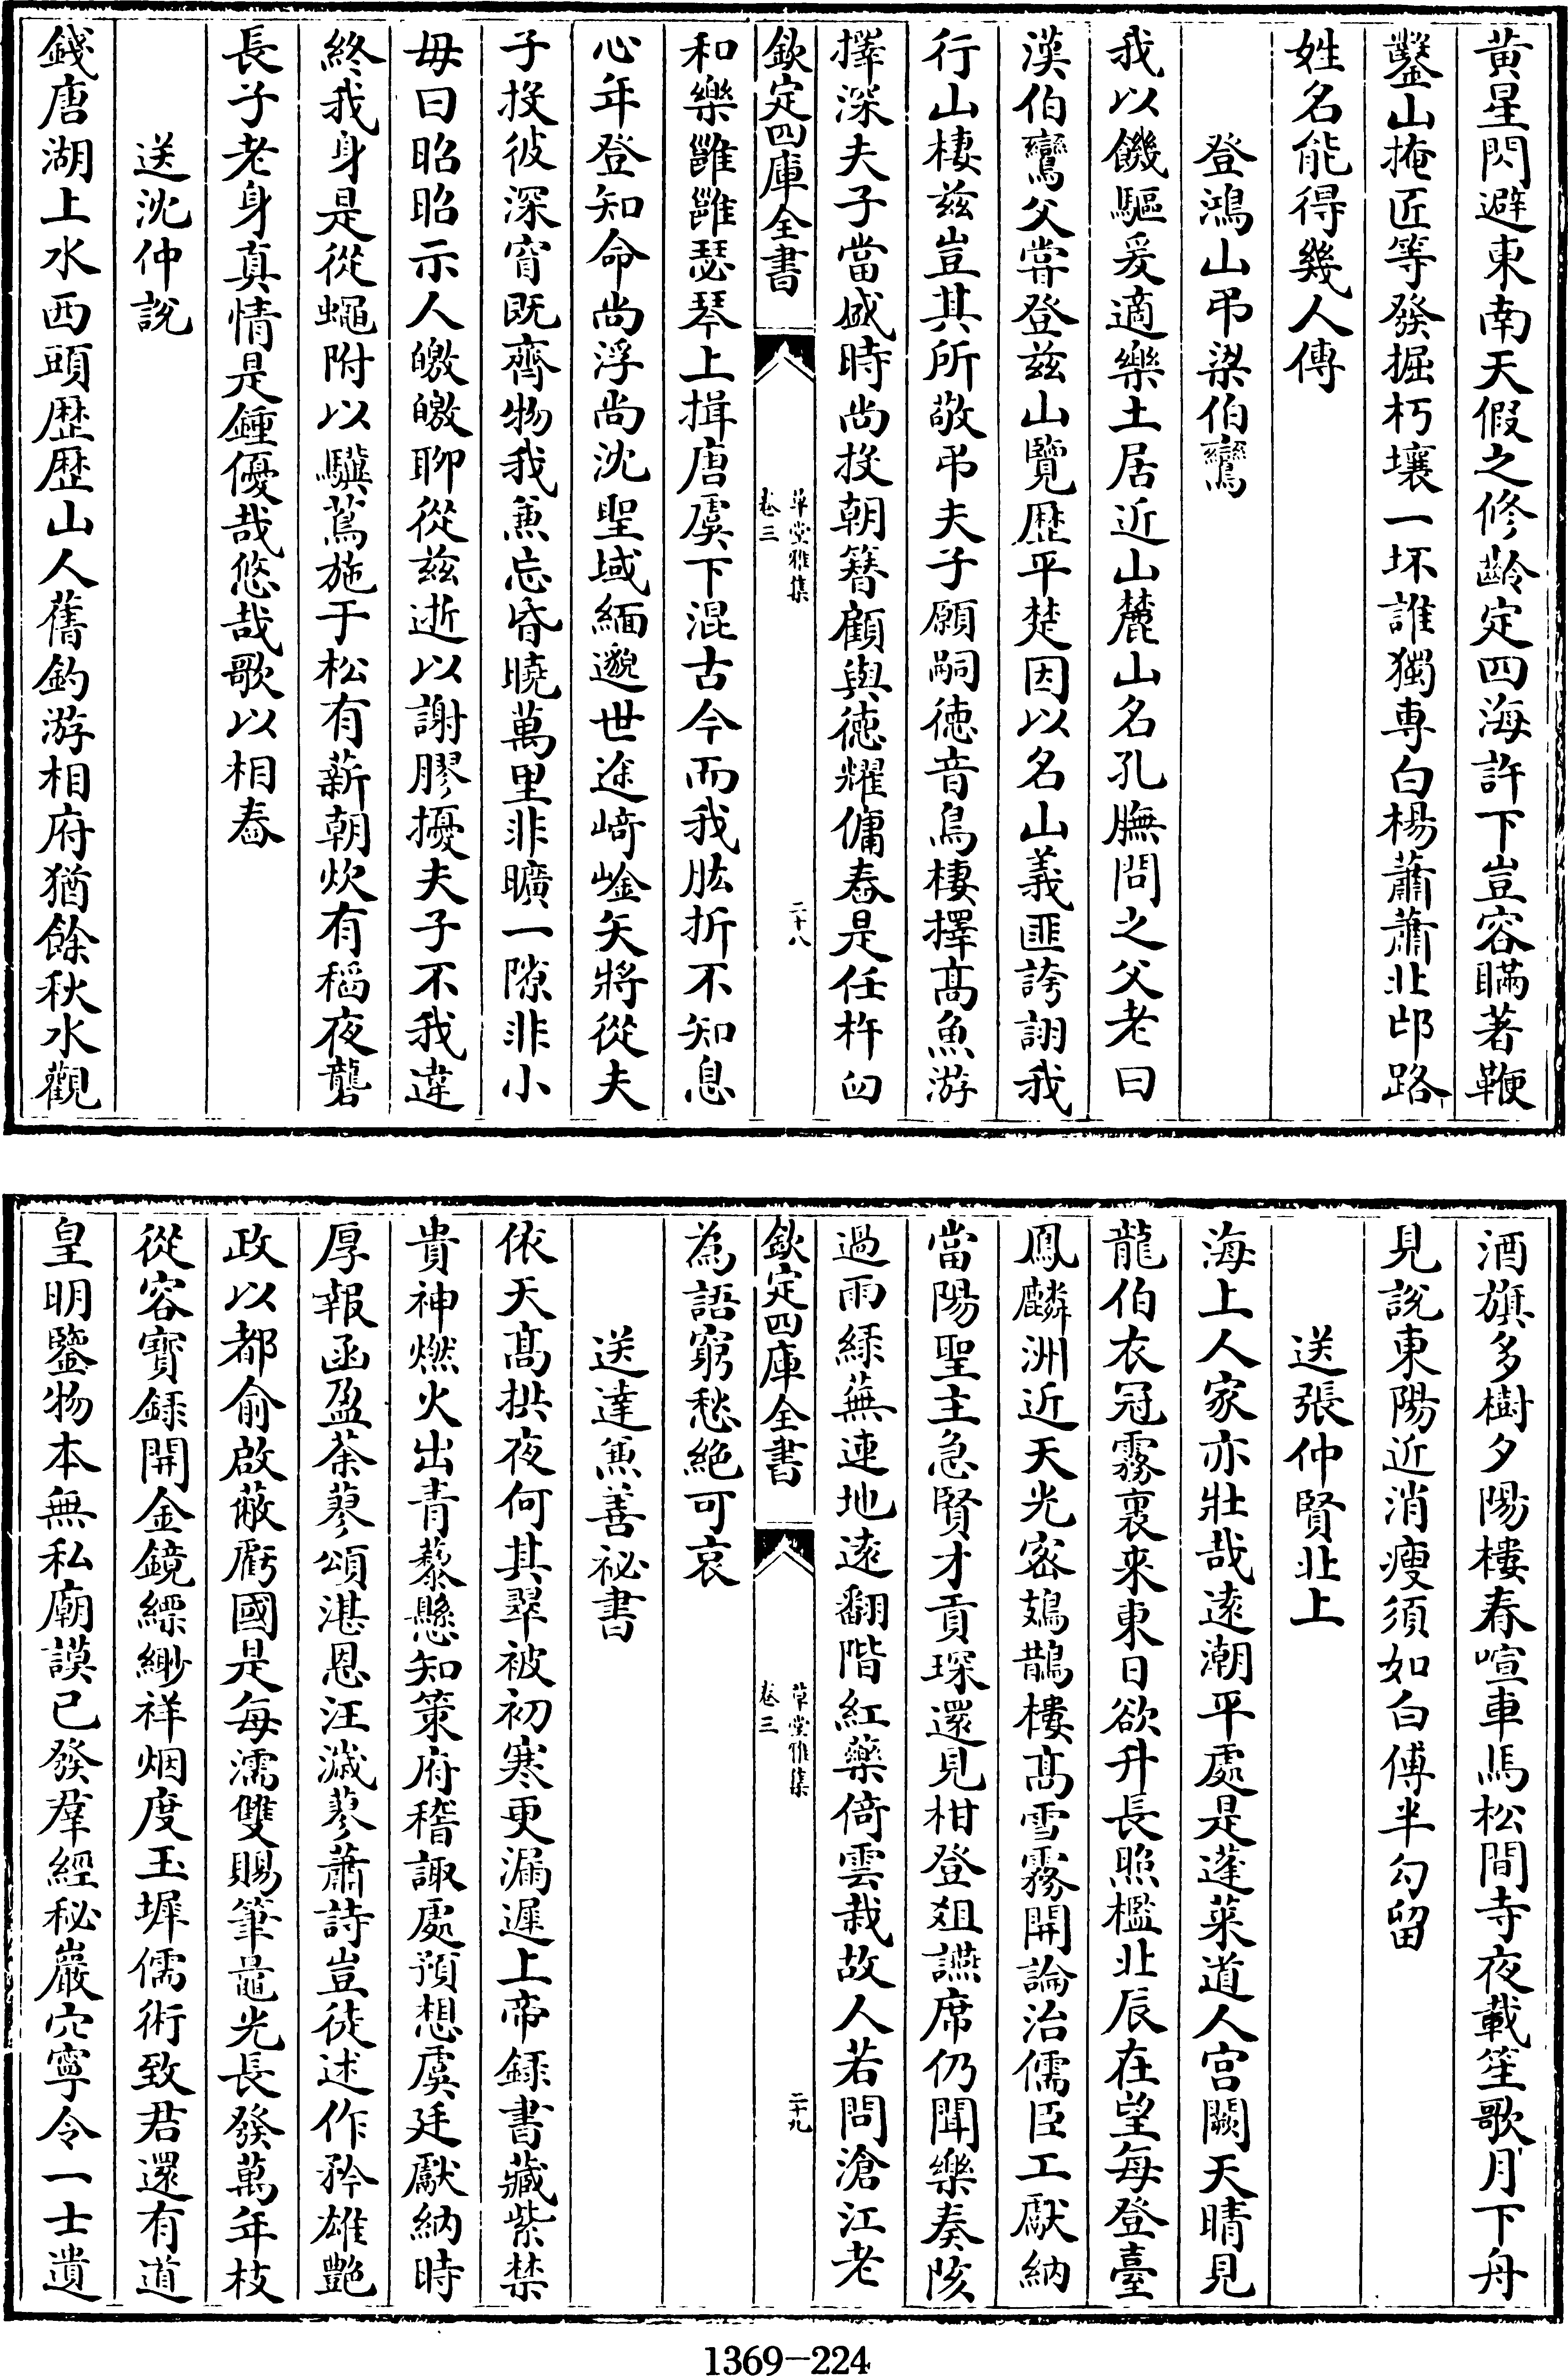 黃星閃避東南天假之修齡定四海許下豈容瞞著鞭
鑿山掩匠等發掘朽壤一坏誰獨專白楊蕭蕭北邙路
姓名能得幾人傳
登鴻山弔梁伯鸞
我以饑驅爰適樂土居近山麓山名孔膴問之父老曰
漢伯鸞父甞登兹山覽歴平楚因以名山義匪誇詡我
行山棲兹豈其所敬弔夫子願嗣徳音鳥棲擇髙魚游
擇深夫子當盛時尚投朝簪顧與徳耀傭舂是任杵臼
欽定四庫全書
草堂雅集
卷三
二十八
和樂雝雝瑟琴上揖唐虞下混古今而我肱折不知息
心年登知命尚浮尚沈聖域緬邈世途﨑崟矢將從夫
子投彼深窅既齊物我兼忘昏曉萬里非曠一隙非小
毋曰昭昭示人皦皦聊從兹逝以謝膠擾夫子不我違
終我身是從蠅附以驥蔦施于松有薪朝炊有稻夜礱
長子老身真情是鍾優哉悠哉歌以相舂
送沈仲說
錢唐湖上水西頭歴歴山人舊釣游相府猶餘秋水觀
酒旗多樹夕陽樓春喧車馬松間寺夜載笙歌月下舟
見說東陽近消瘦須如白傅半勾留
送張仲賢北上
海上人家亦壯哉遠潮平處是蓬萊道人宫闕天晴見
龍伯衣冠霧裏来東日欲升長照檻北辰在望每登臺
鳳麟洲近天光宻鳷鵲樓髙雪霧開論治儒臣工獻納
當陽聖主急賢才貢琛還見柑登爼讌席仍聞樂奏陔
過雨緑蕪連地遠翻階紅藥倚雲栽故人若問滄江老
欽定四庫全書
草堂雅集
卷三
二十九
為語窮愁絶可哀
送達兼善祕書
依天髙拱夜何其翠被初寒更漏遲上帝録書藏紫禁
貴神燃火出青藜懸知策府稽諏處預想虞廷獻納時
厚報函盈荼蓼頌湛恩汪濊蓼蕭詩豈徒述作矜雄艶
政以都俞啟蔽虧國是每濡雙賜筆黽光長發萬年枝
從容寳録開金鏡縹緲祥烟度玉墀儒術致君還有道
皇明鑒物本無私廟謨已發羣經秘巖穴寧令一士遺
1369－224